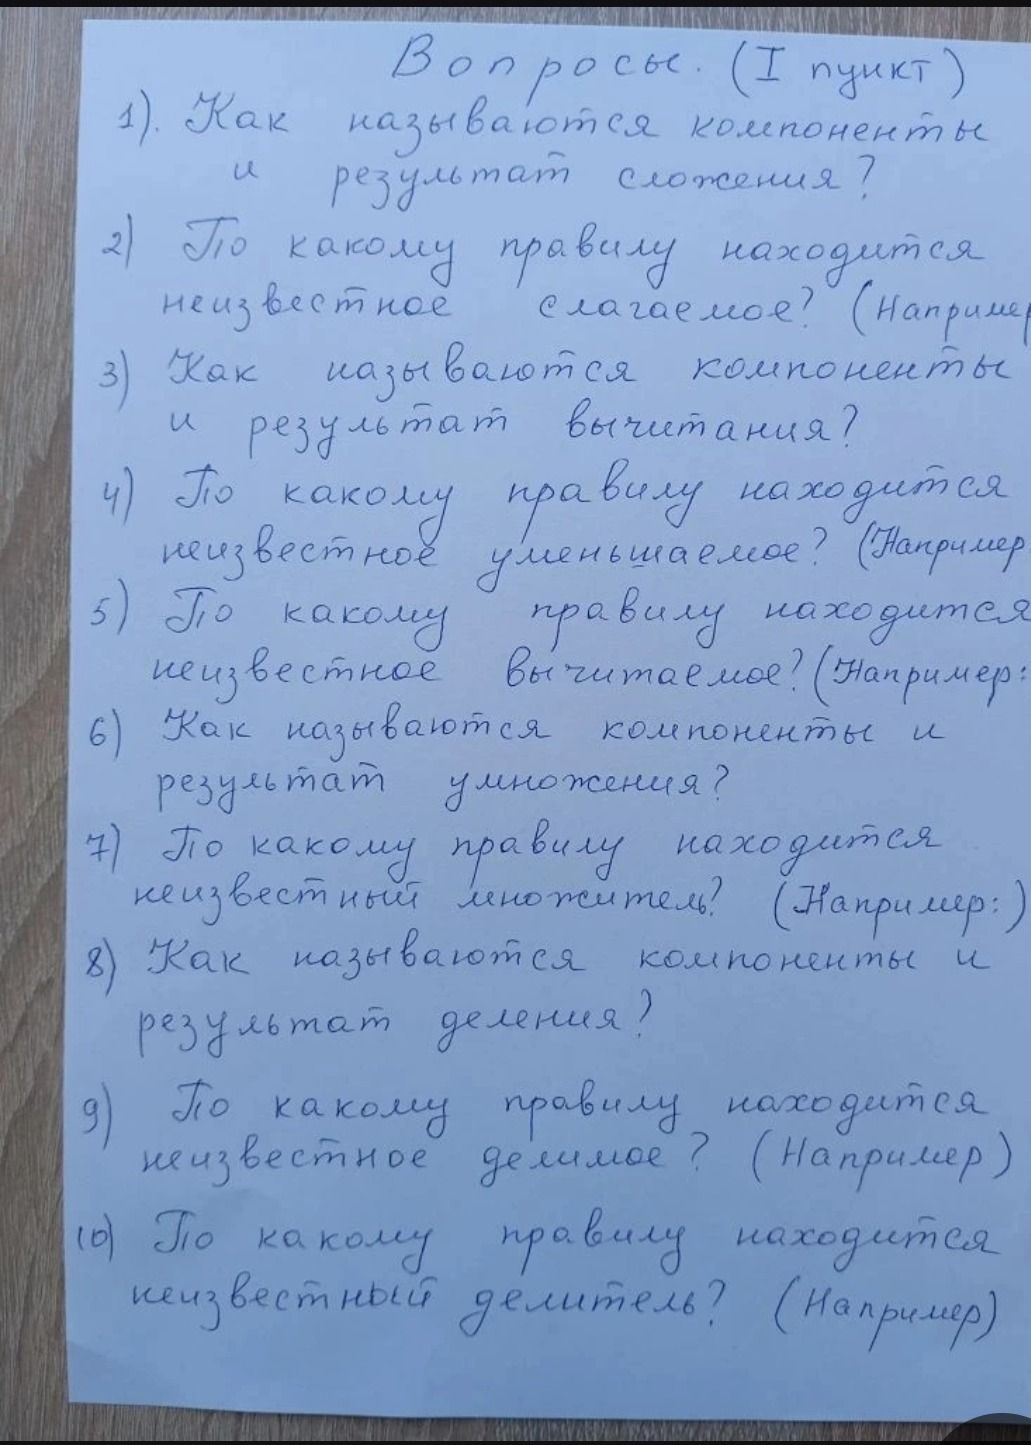 Вопросы. (I пункт)
1). Как называются компоненты
и результат сложения?
2) По какому правилу находится
неизвестное слагаемое? (Например
3) Как называются компоненты
и результат вычитания?
4) По какому правилу находится
неизвестное уменьшаемое? (Например
5) По какому правилу находится
неизвестное вычитаемое? (Например:
6) Как называются компоненты и
результат умножения?
7) По какому правилу находится
неизвестный множитель? (Например:)
8) Как называются компоненты и
результат деления?
9) По какому правилу находится
неизвестное делимое? (Например)
10) По какому правилу находится
неизвестный делитель? (Например)